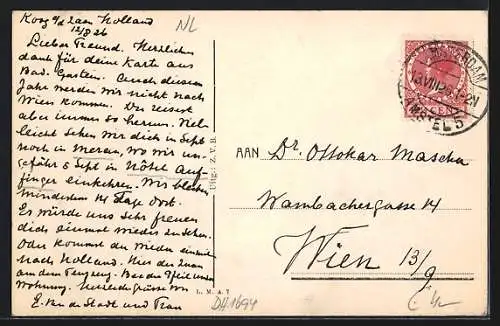 Koog a/d Zaan Holland
12/8 26
NL
Lieber Freund. Herzlichen
dank für deine Karte aus
Bad. Gastein. Auch diesem
Jahr werden wir nicht nach
Wien kommen. Du reisest
aber immer so herum. Viel-
leicht sehen wir dich in Sept
noch in Meran, wo wir un-
gefähr 5 Sept in Hôtel Auf-
finger einkehren. Wir bleiben
mindestens 14 Tage dort.
Es würde uns sehr freuen
dich einmal wieder zu sehen.
Oder kommst du wieder einmal
nach Holland. Hier der Zaan
am dem Pfeil unsere
Wohnung. Herzliche Grüsse von
E. van de Stadt und Frau
Uitg.: Z. V. B.
L. M. A. 7
DH1694
AMSTERDAM
AMSTEL 5
AAN Dr. Ottokar Mascha
Wambachergasse 14
Wien 13/9